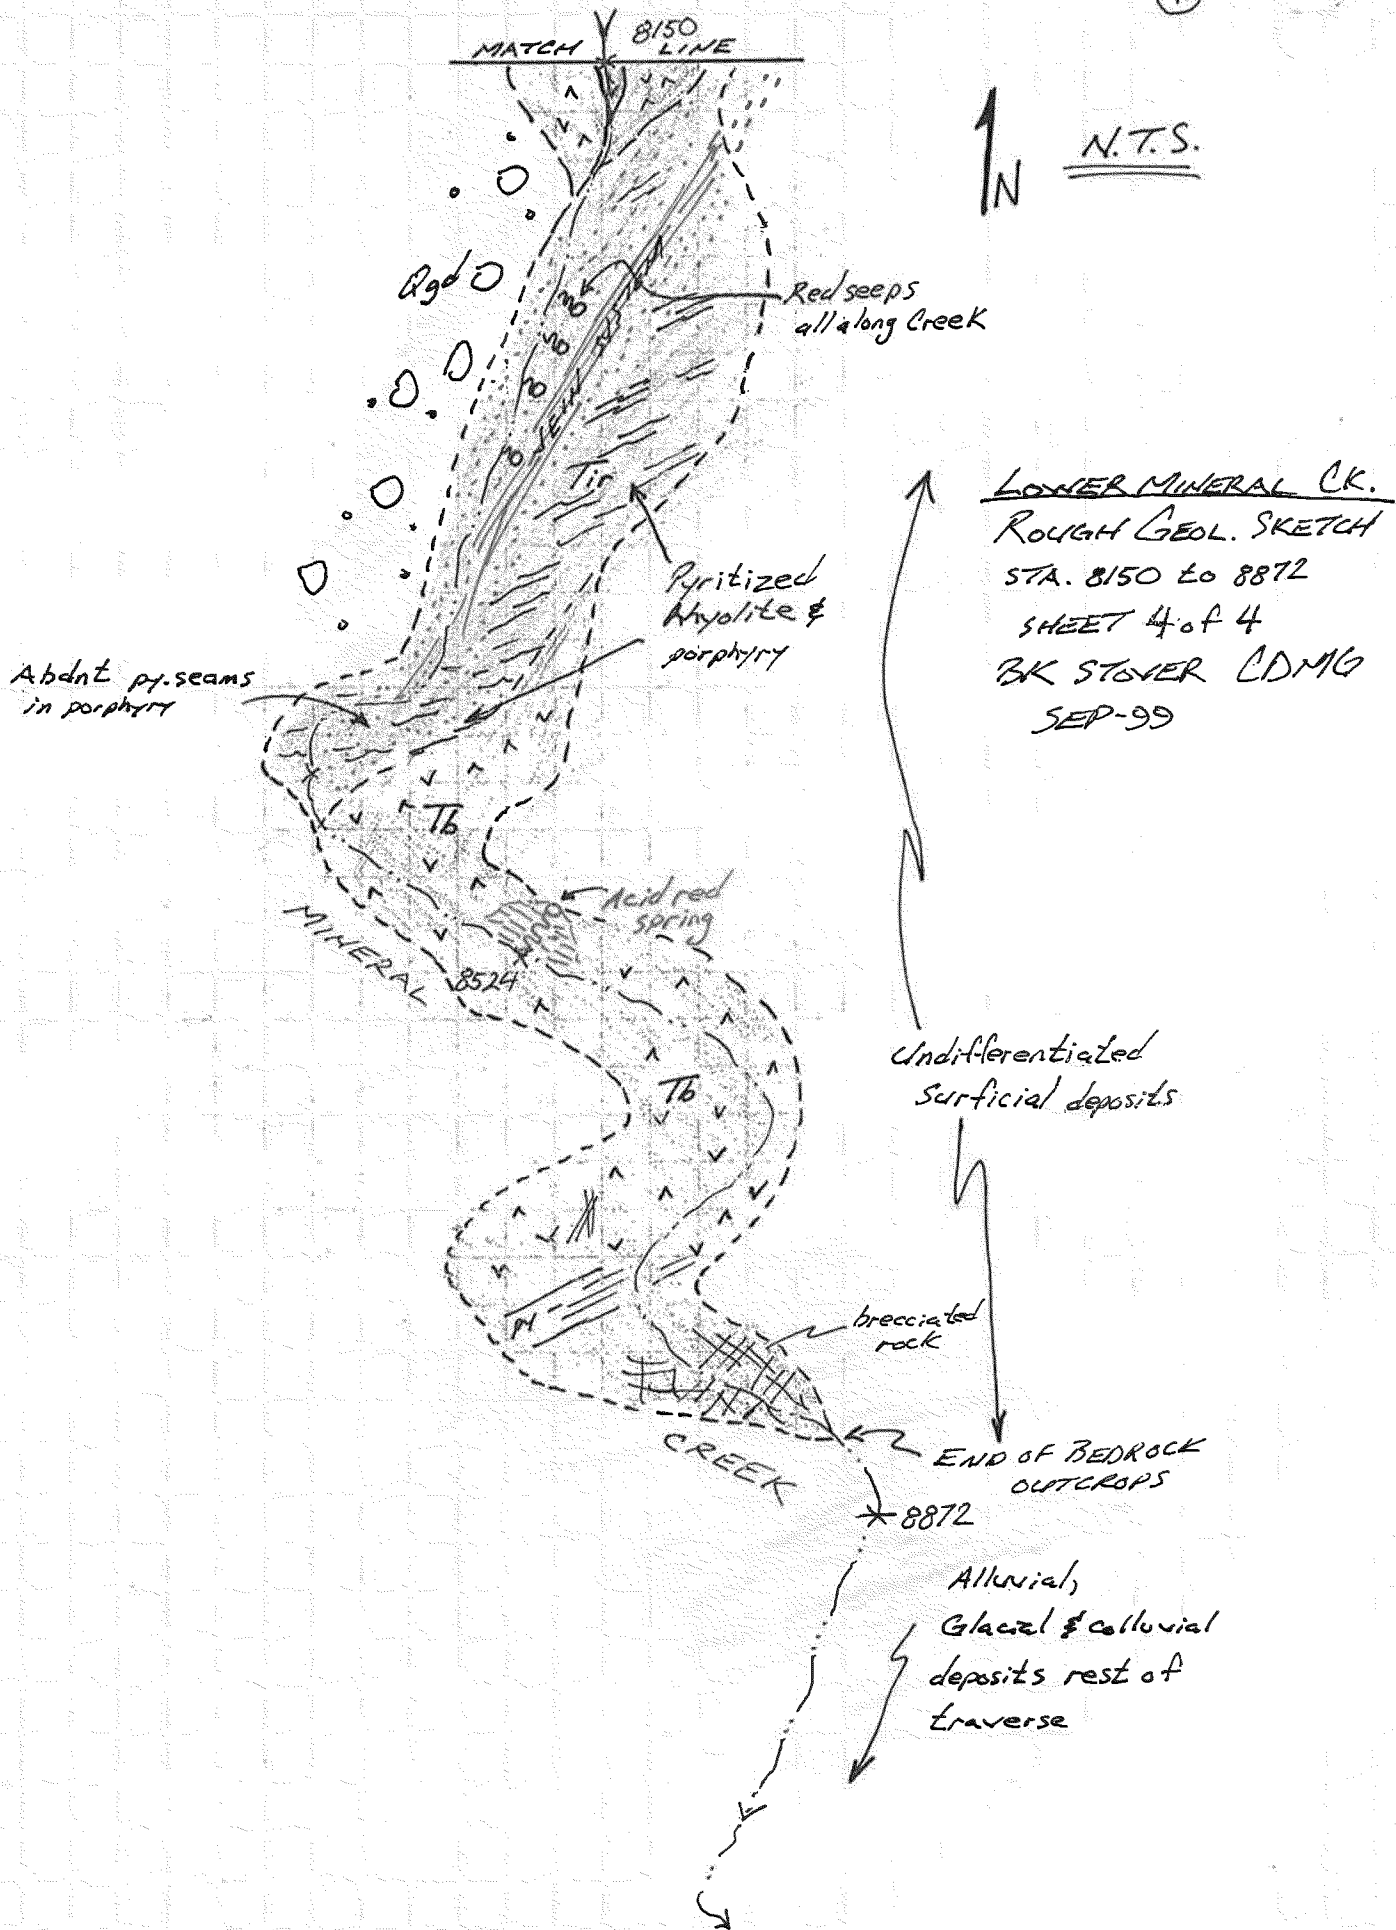 4
8150
MATCH LINE
N
N.T.S.
Qgd
Red seeps
all along Creek
VEIN
VEIN
Tir
LOWER MINERAL CK.
ROUGH GEOL. SKETCH
STA. 8150 to 8872
SHEET 4 of 4
BK STOVER CDMG
SEP-99
Pyritized
Rhyolite &
porphyry
Abdnt py. seams
in porphyry
Tb
Acid red
spring
MINERAL
8524
Undifferentiated
Surficial deposits
Tb
py
brecciated
rock
CREEK
END OF BEDROCK
OUTCROPS
8872
Alluvial,
Glacial & colluvial
deposits rest of
traverse